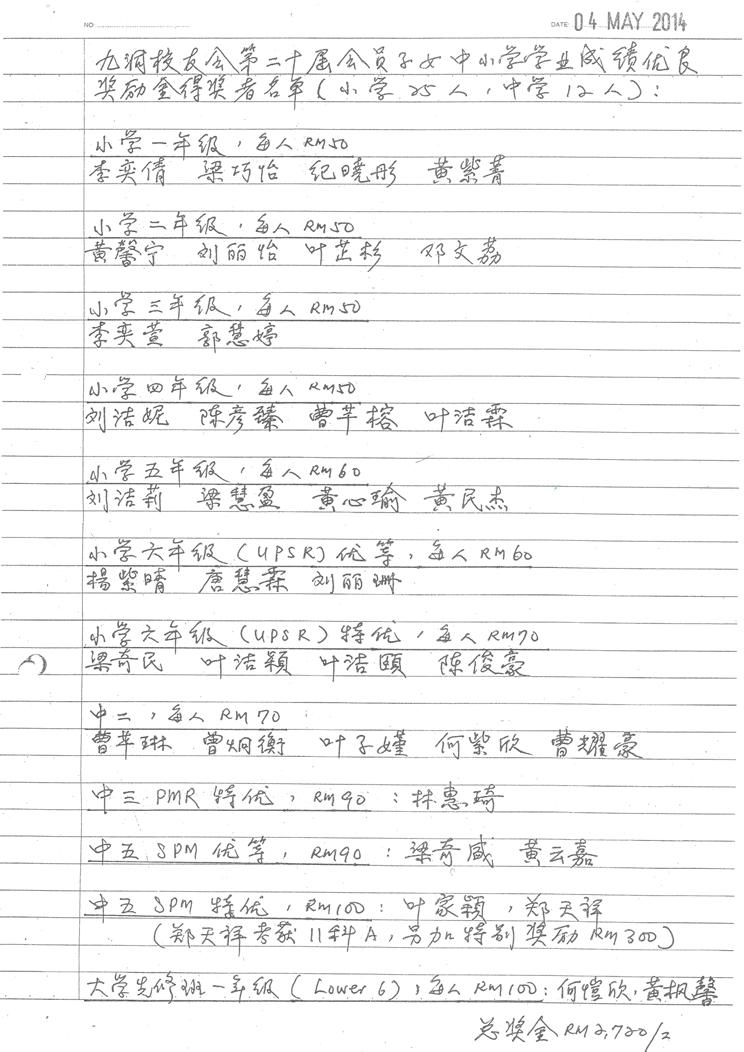 NO: DATE: 04 MAY 2014
九洞校友会第二十届会员子女中小学学业成绩优良
奖励金得奖者名单(小学25人,中学12人):
小学一年级,每人RM50
李奕倩 梁巧怡 纪晓彤 黄紫菁
小学二年级,每人RM50
黄馨宁 刘丽怡 叶芷杉 邓文荔
小学三年级,每人RM50
李奕萱 郭慧婷
小学四年级,每人RM50
刘洁妮 陈彦臻 曹芊榕 叶洁霖
小学五年级,每人RM60
刘洁莉 梁慧盈 黄心瑜 黄民杰
小学六年级(UPSR)优等,每人RM60
杨紫晴 唐慧霖 刘丽珊
小学六年级(UPSR)特优,每人RM70
梁奇民 叶洁颖 叶洁颐 陈俊豪
中二,每人RM70
曹芊琳 曾炯衡 叶子嫤 何紫欣 曹耀豪
中三PMR特优,RM90:林惠琦
中五SPM优等,RM90:梁奇威 黄云嘉
中五SPM特优,RM100:叶家颖,郑天祥
(郑天祥考获11科A,另加特别奖励RM300)
大学先修班一年级(Lower 6),每人RM100:何恺欣,黄枫馨
总奖金RM2,720/=